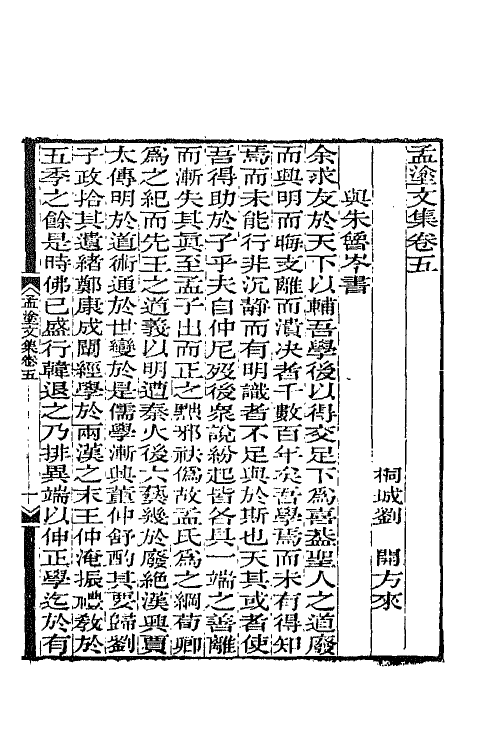 孟塗文集卷五
桐城劉　開方來
與朱魯岑書
余求友於天下以輔吾學後以得交足下爲喜葢聖人之道廢
而興明而晦支離而潰决者千數百年矣吾學焉而未有得知
焉而未能行非沉靜而有明識者不足與於斯也天其或者使
吾得助於子乎夫自仲尼歿後衆說紛起皆各具一端之善離
而漸失其眞至孟子出而正之黜邪袪僞故孟氏爲之綱荀卿
爲之紀而先王之道義以明遭秦火後六藝幾於廢絶漢興賈
太傅明於道術通於世變於是儒學漸興董仲舒酌其要歸劉
子政拾其遺緖鄭康成闡經學於兩漢之末王仲淹振禮敎於
五季之餘是時佛已盛行韓退之乃排異端以伸正學迄於有
孟塗文集卷五
十